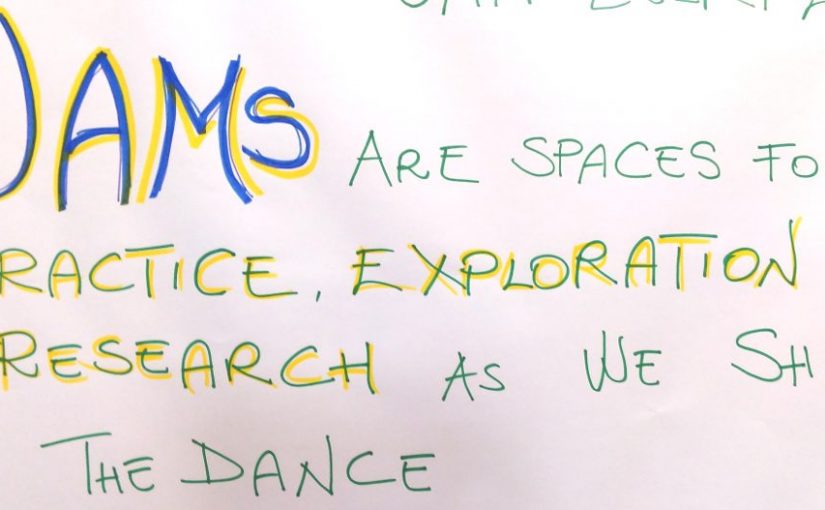 JAMS ARE SPACES FO
RACTICE, EXPLORATION
RESEARCH AS WE SH
THE DANCE